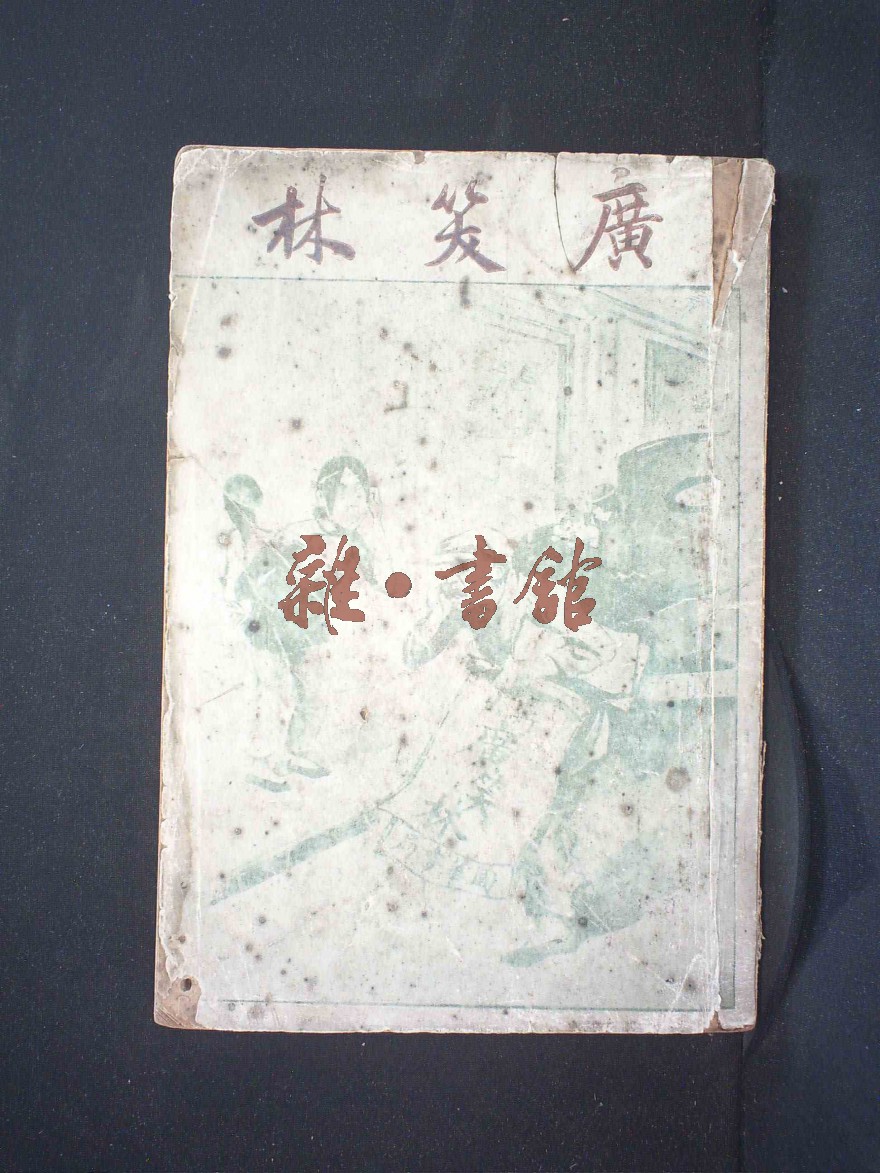 廣笑林
雜·書館